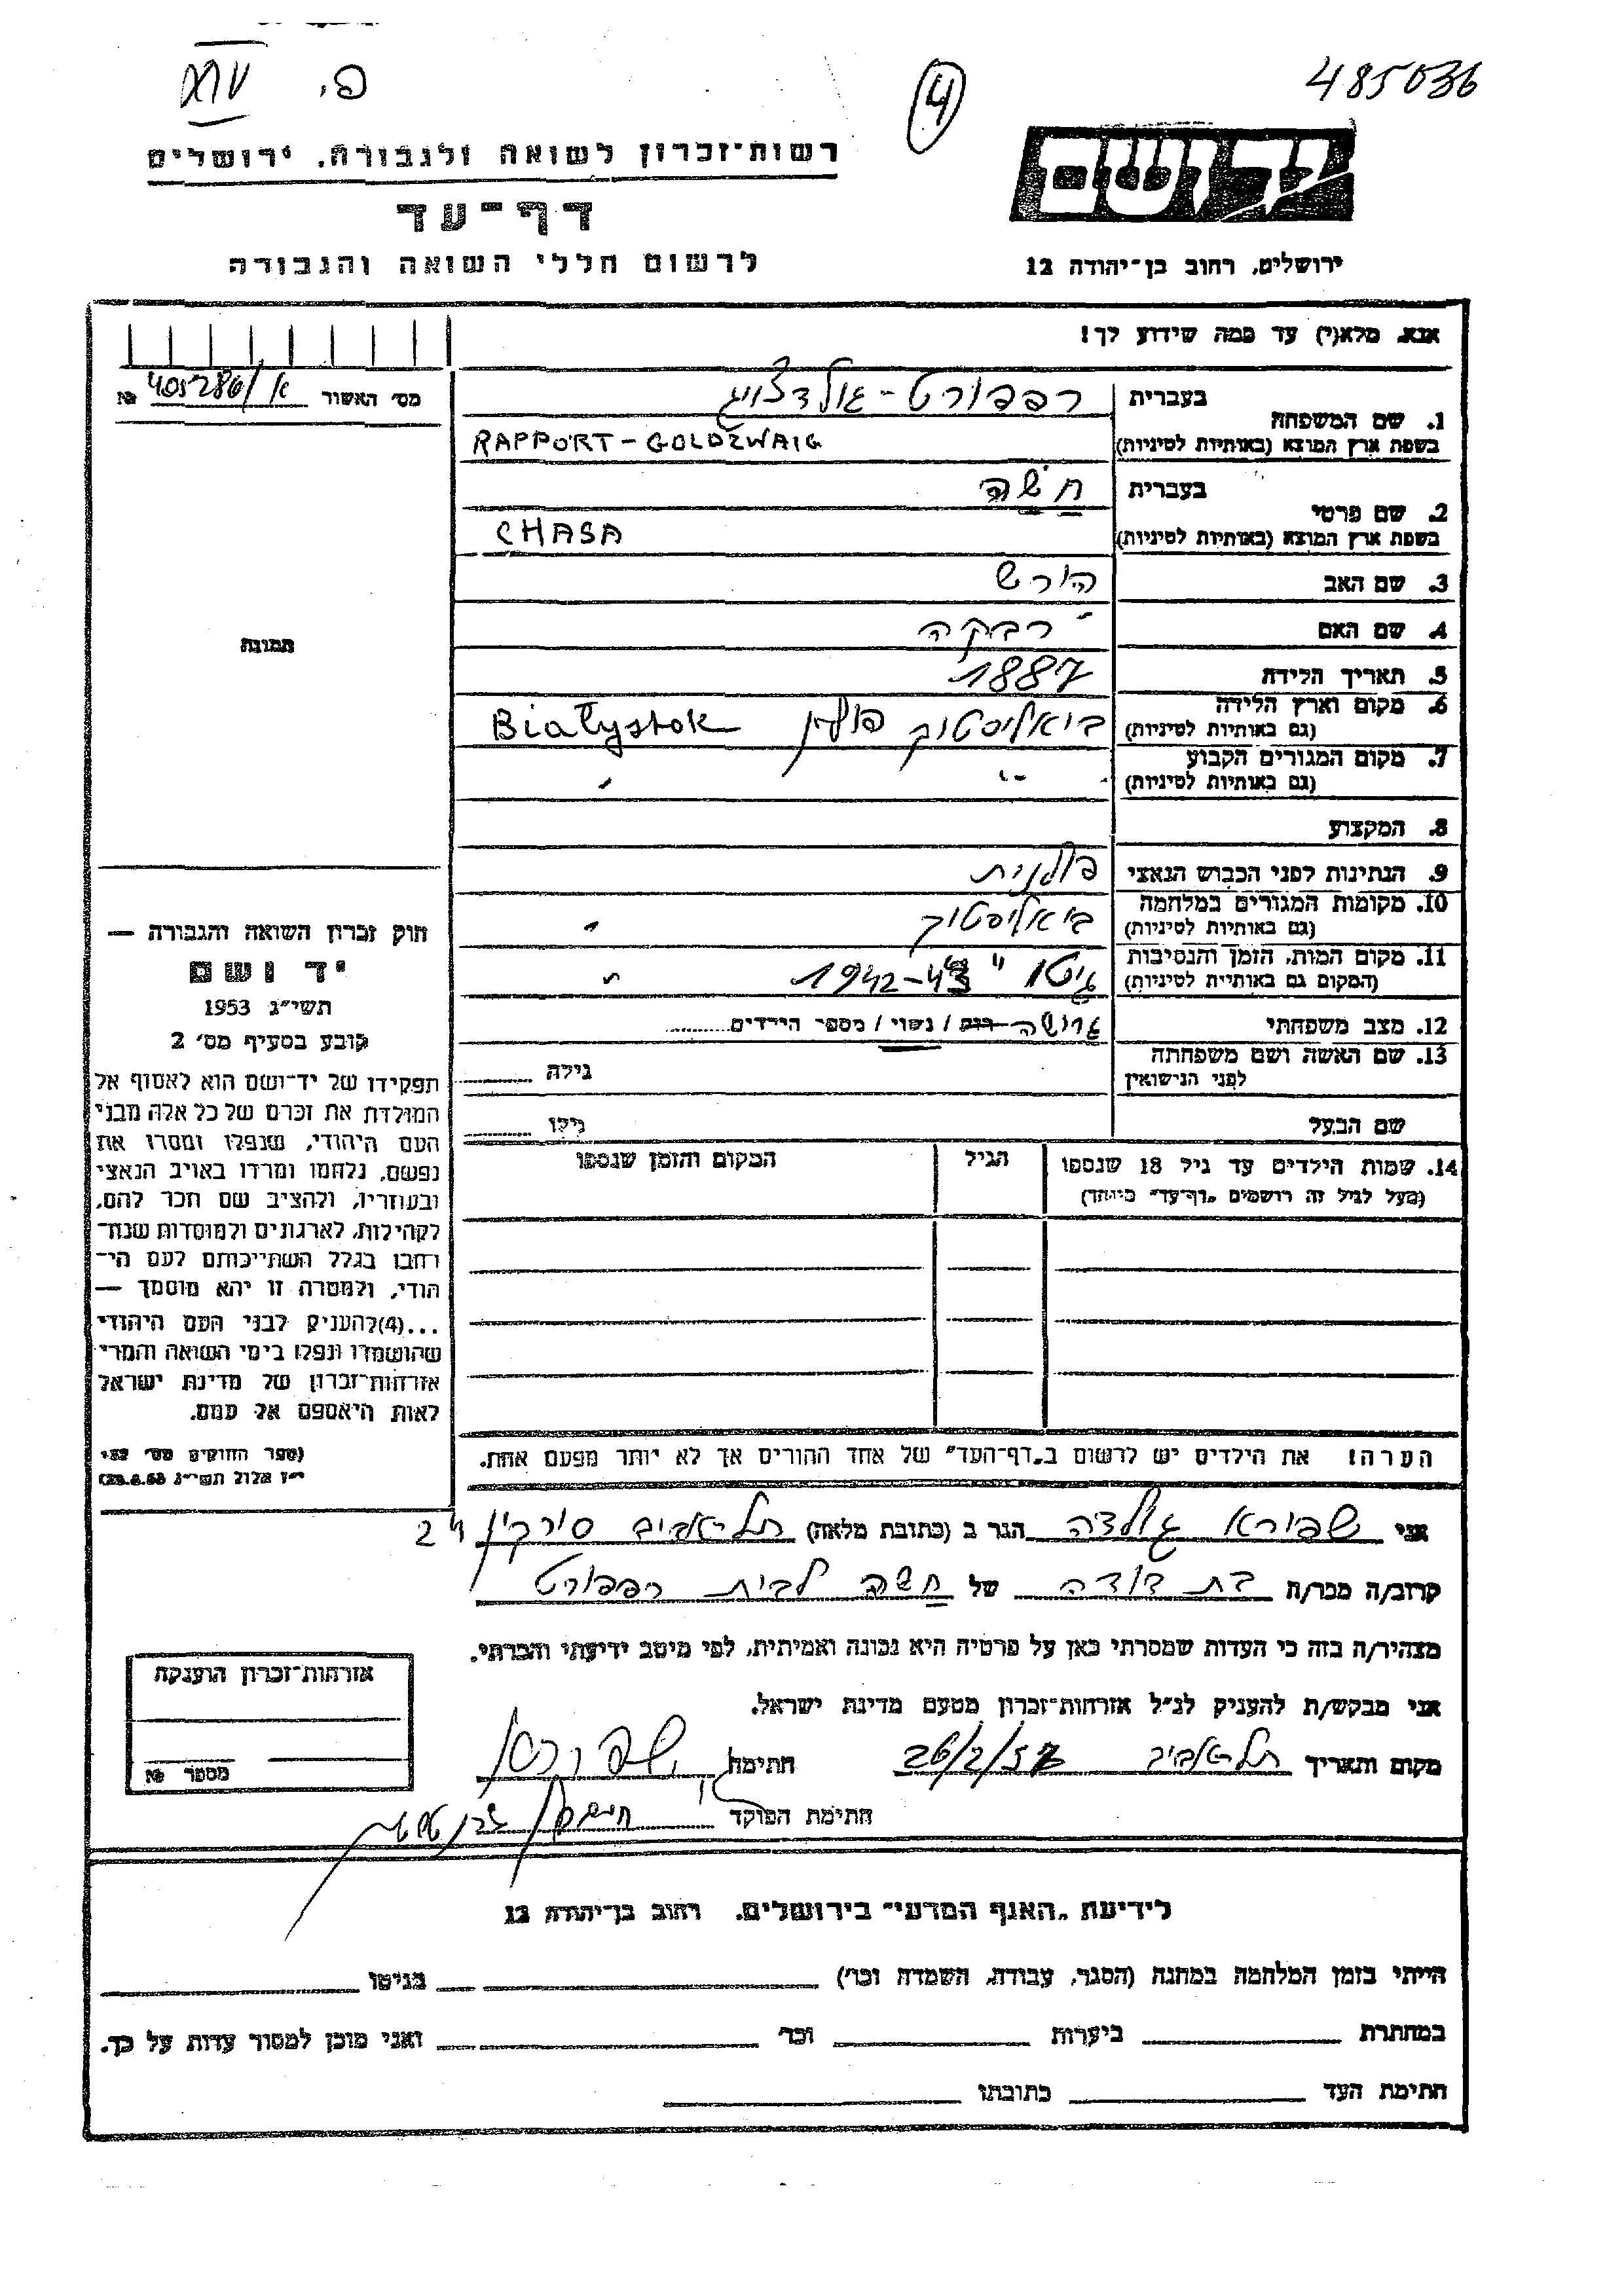 485036
④
פ. XIV
יד ושם
ירושלים, רחוב בן־יהודה 12
רשות־זכרון לשואה ולגבורה, ירושלים
דף־עד
לרשום חללי השואה והגבורה
אנא, מלא(י) עד כמה שידוע לך!
מס׳ האשור 405286/א №
תמונה
1. שם המשפחה בעברית רפפורט-גולדצווג
בשפת ארץ המוצא (באותיות לטיניות) RAPPORT-GOLDZWAIG
2. שם פרטי בעברית חשה
בשפת ארץ המוצא (באותיות לטיניות) CHASA
3. שם האב הורש
4. שם האם רבקה
5. תאריך הלידה 1887
6. מקום וארץ הלידה (גם באותיות לטיניות) ביאליסטוק פולין Białystok
7. מקום המגורים הקבוע (גם באותיות לטיניות) " "
8. המקצוע
9. הנתינות לפני הכבוש הנאצי פולנית
10. מקומות המגורים במלחמה (גם באותיות לטיניות) ביאליסטוק "
11. מקום המות, הזמן והנסיבות (המקום גם באותיית לטיניות) גיטו " 1942-43 "
12. מצב משפחתי גרושה רווק / נשוי / מספר הילדים
13. שם האשה ושם משפחתה לפני הנישואין גילה
שם הבעל גילו
14. שמות הילדים עד גיל 18 שנספו הגיל המקום והזמן שנספו
(מעל לגיל זה רושמים „דף־עד״ מיוחד)
הערה! את הילדים יש לרשום ב„דף־העד״ של אחד ההורים אך לא יותר מפעם אחת.
חוק זכרון השואה והגבורה —
יד ושם
תשי״ג 1953
קובע בסעיף מס׳ 2
תפקידו של יד־ושם הוא לאסוף אל
המולדת את זכרם של כל אלה מבני
העם היהודי, שנפלו ומסרו את
נפשם, נלחמו ומרדו באויב הנאצי
ובעוזריו, ולהציב שם וזכר להם,
לקהילות, לארגונים ולמוסדות שנח־
רבו בגלל השתייכותם לעם הי־
הודי, ולמטרה זו יהא מוסמך —
...(4)להעניק לבני העם היהודי
שהושמדו ונפלו בימי השואה והמרי
אזרחות־זכרון של מדינת ישראל
לאות היאספם אל עמם.
(ספר החוקים מס׳ 132
י״ז אלול תשי״ג 28.8.53)
אני שפירא גולדה הגר ב (כתובת מלאה) תל-אביב סירקין 24
קרוב/ה מכר/ה בת דודה של חשה לבית רפפורט
מצהיר/ה בזה כי העדות שמסרתי כאן על פרטיה היא נכונה ואמיתית, לפי מיטב ידיעתי והכרתי.
אני מבקש/ת להעניק לנ״ל אזרחות־זכרון מטעם מדינת ישראל.
מקום ותאריך תל-אביב 26/2/57 חתימה שפירא
חתימת הפוקד
אזרחות־זכרון הוענקה
מספר №
לידיעת „האגף המדעי״ בירושלים, רחוב בן־יהודה 12
הייתי בזמן המלחמה במחנה (הסגר, עבודה, השמדה וכו׳) בגיטו
במחתרת ביערות וכו׳ ואני מוכן למסור עדות על כך.
חתימת העד כתובתו